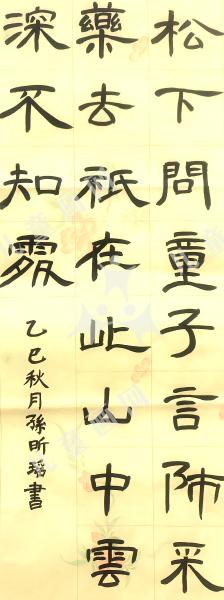 松下問童子言師采
藥去衹在此山中雲
深不知處
乙巳秋月孫昕瑶書